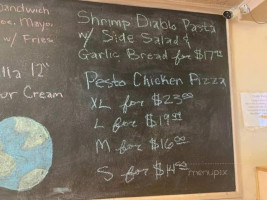 andwich
ee. Mayo
w/ Fries
lla 12"
ur Cream
Shrimp Diablo Pasta
w/ Side Salad &
Garlic Bread for $17
Pesto Chicken Pizza
XL for $23.00
L for $19.99
M for $16.00
S for $14.00
menupix